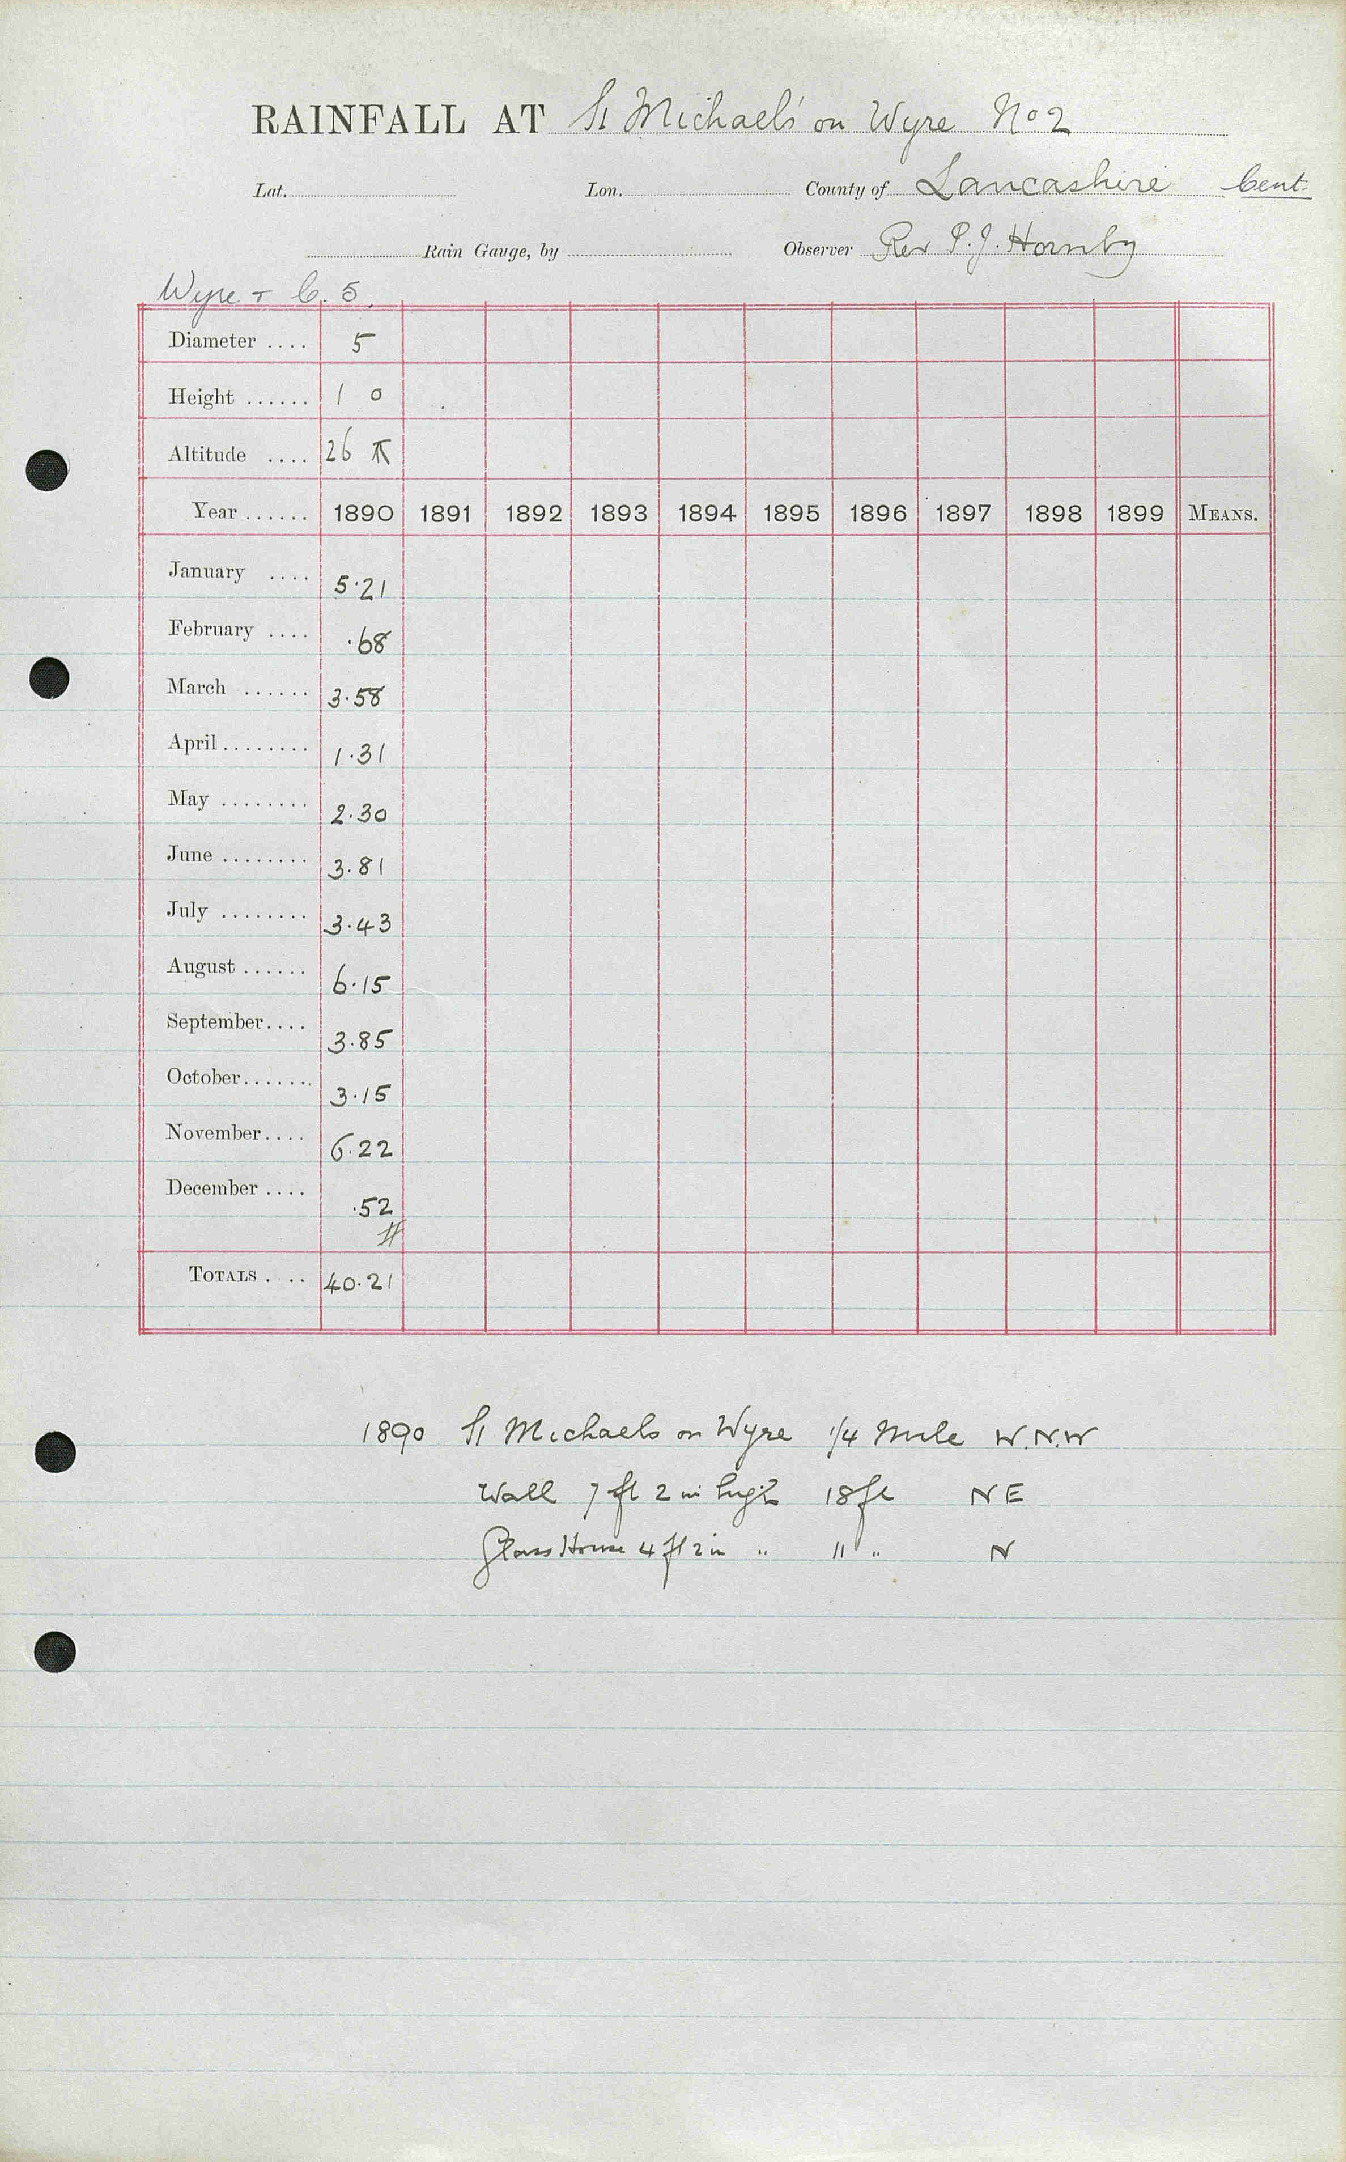 RAINFALL AT St Michael's on Wyre No 2
Lat. Lon. County of Lancashire Cent.
Rain Gauge, by Observer Rev P. J. Hornby
Wyre + C. 5.
Diameter .... 5
Height ...... 1 0
Altitude .... 26
Year ...... 1890 1891 1892 1893 1894 1895 1896 1897 1898 1899 MEANS.
January .... 5.21
February .... .68
March ...... 3.58
April ........ 1.31
May ........ 2.30
June ........ 3.81
July ........ 3.43
August ...... 6.15
September .... 3.85
October ....... 3.15
November .... 6.22
December .... .52
#
TOTALS .... 40.21
1890 St Michaels on Wyre 1/4 Mile W.N.W
Wall 7 ft 2 in high 18 ft NE
Glass House 4 ft 2 in " 11 " N